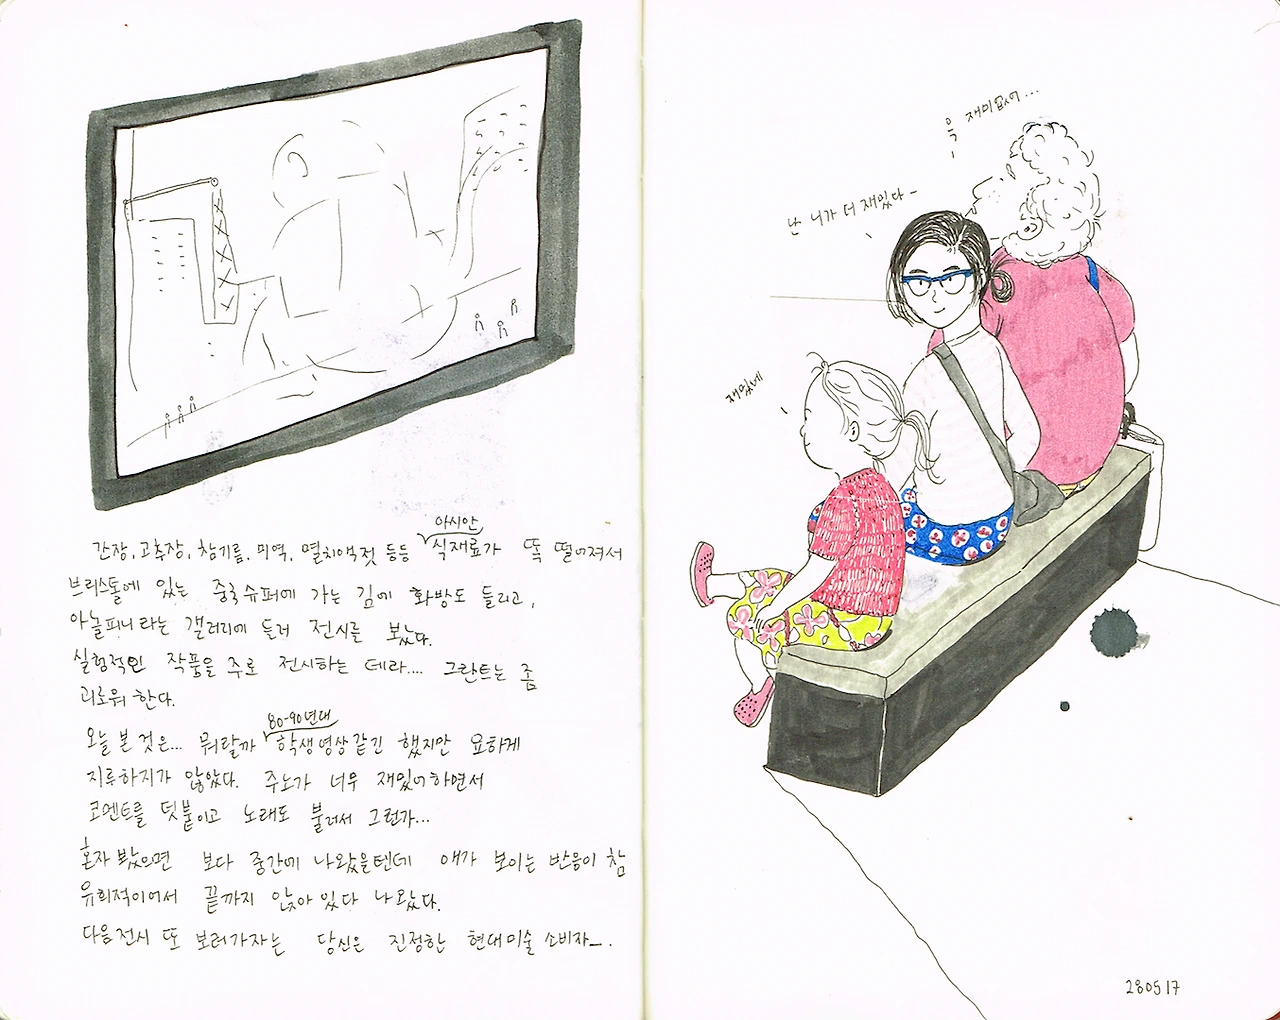 아시안
간장, 고추장, 참기름, 미역, 멸치액젓 등등 식재료가 똑 떨어져서
브리스톨에 있는 중국슈퍼에 가는 김에 화방도 들리고,
아놀피니라는 갤러리에 들러 전시를 봤다.
실험적인 작품을 주로 전시하는 데라.... 그란트는 좀
괴로워 한다.
80-90년대
오늘 본 것은... 뭐랄까 학생영상같긴 했지만 요하게
지루하지가 않았다. 주노가 너무 재밌어하면서
코멘트를 덧붙이고 노래도 불러서 그런가...
혼자 봤으면 보다 중간에 나왔을텐데 얘가 보이는 반응이 참
유희적이어서 끝까지 앉아 있다 나왔다.
다음 전시 또 보러가자는 당신은 진정한 현대미술 소비자_.
윽 재미없어...
난 니가 더 재밌다-
재밌네
280517